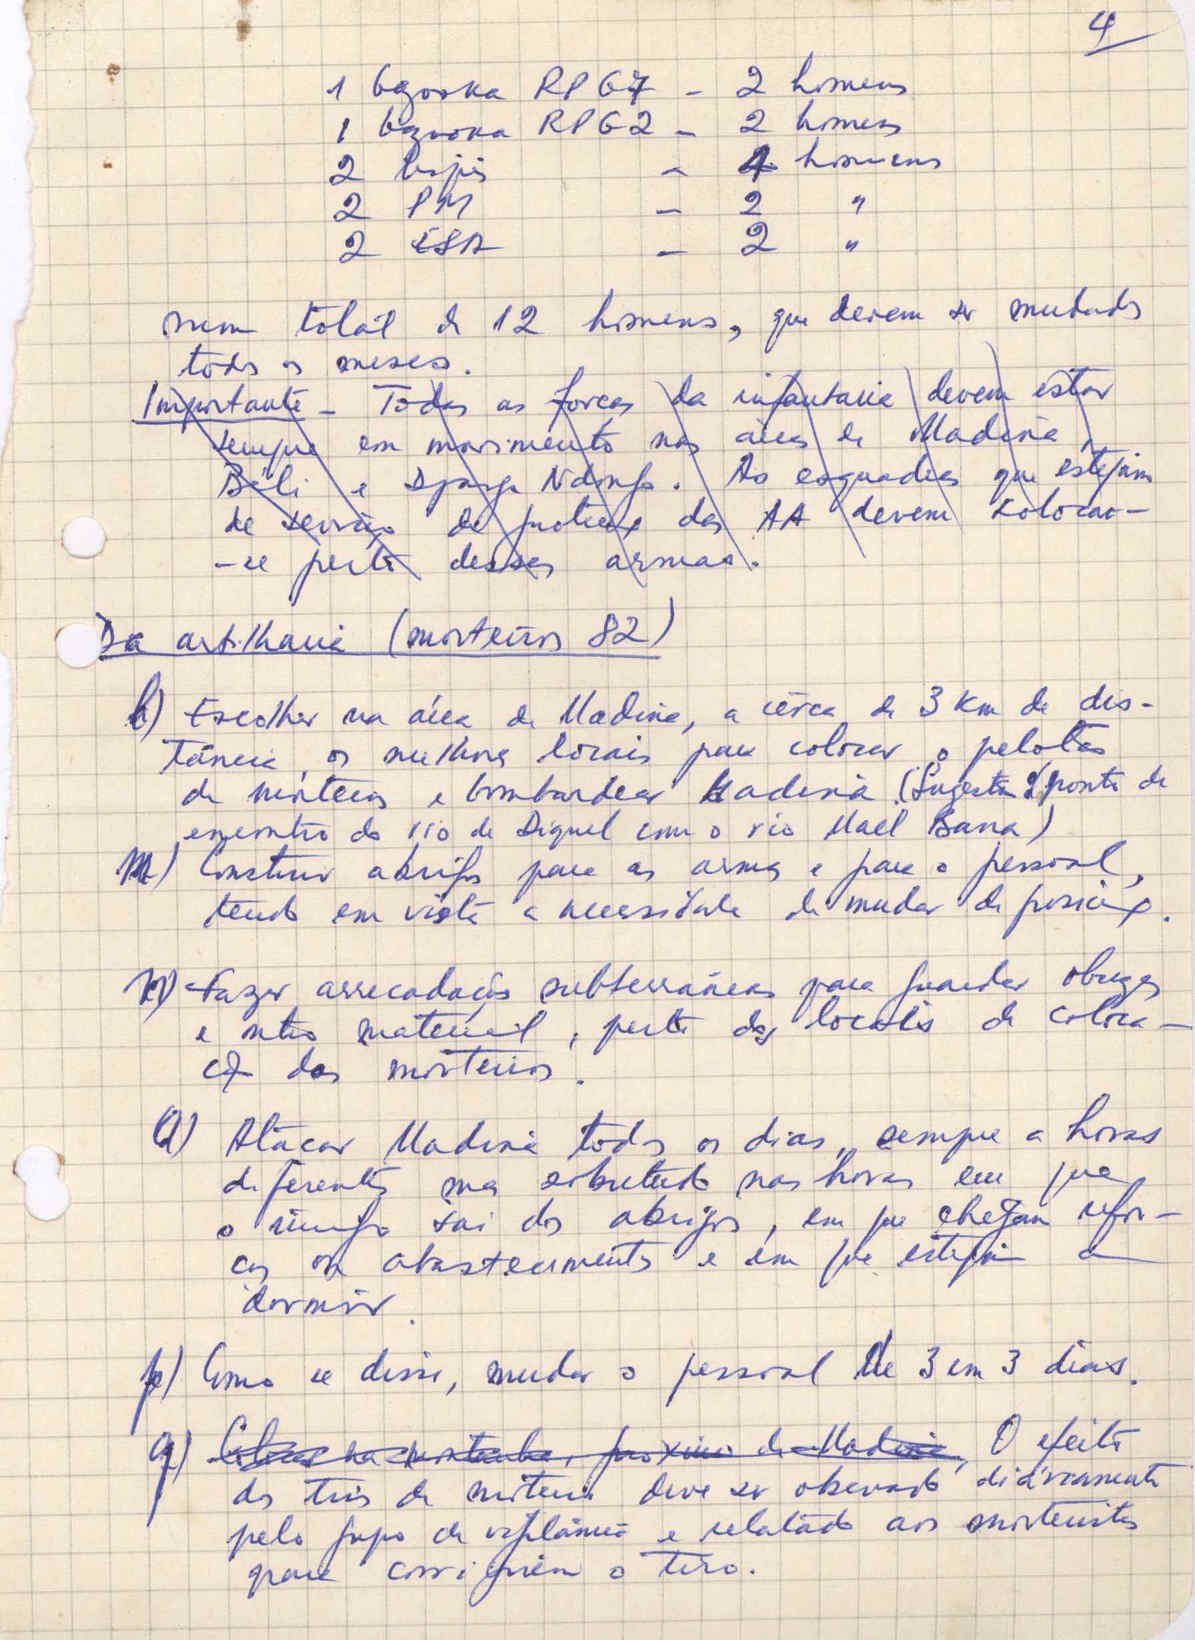 4
1 bazooka RPG7 - 2 homens
1 bazooka RPG2 - 2 homens
2 - 4 homens
2 PM - 2 "
2 - 2 "
num total de 12 homens, que devem ser mudados
todos os meses.
Importante - Todas as forças da infantaria devem estar
sempre em movimento nas áreas de Madina,
Béli e Djarga Ndongo. As esquadras que estejam
de serviço de protecção das AA devem colocar-
-se perto dessas armas.
Da artilharia (morteiros 82)
l) Escolher na área de Madina, a cêrca de 3 km de dis-
tância, os melhores locais para colocar o pelotão
de morteiros e bombardear Madina. (Sugestão: ponto de
encontro do rio de Diquel com o rio Mael Bana)
m) Construir abrigos para as armas e para o pessoal,
tendo em vista a necessidade de mudar de posição.
n) Fazer arrecadações subterrâneas para guardar obuzes
e outro material, perto dos locais de coloca-
ção dos morteiros.
o) Atacar Madina todos os dias, sempre a horas
diferentes mas sobretudo nas horas em que
o inimigo sai dos abrigos, em que chegam refor-
ços ou abastecimentos e em que estejam a
dormir.
p) Como se disse, mudar o pessoal de 3 em 3 dias.
q) Colocar na montanha, próximo de Madina, O efeito
dos tiros de morteiro deve ser observado diàriamente
pelo grupo de vigilância e relatado aos morteiristas
para corrigirem o tiro.